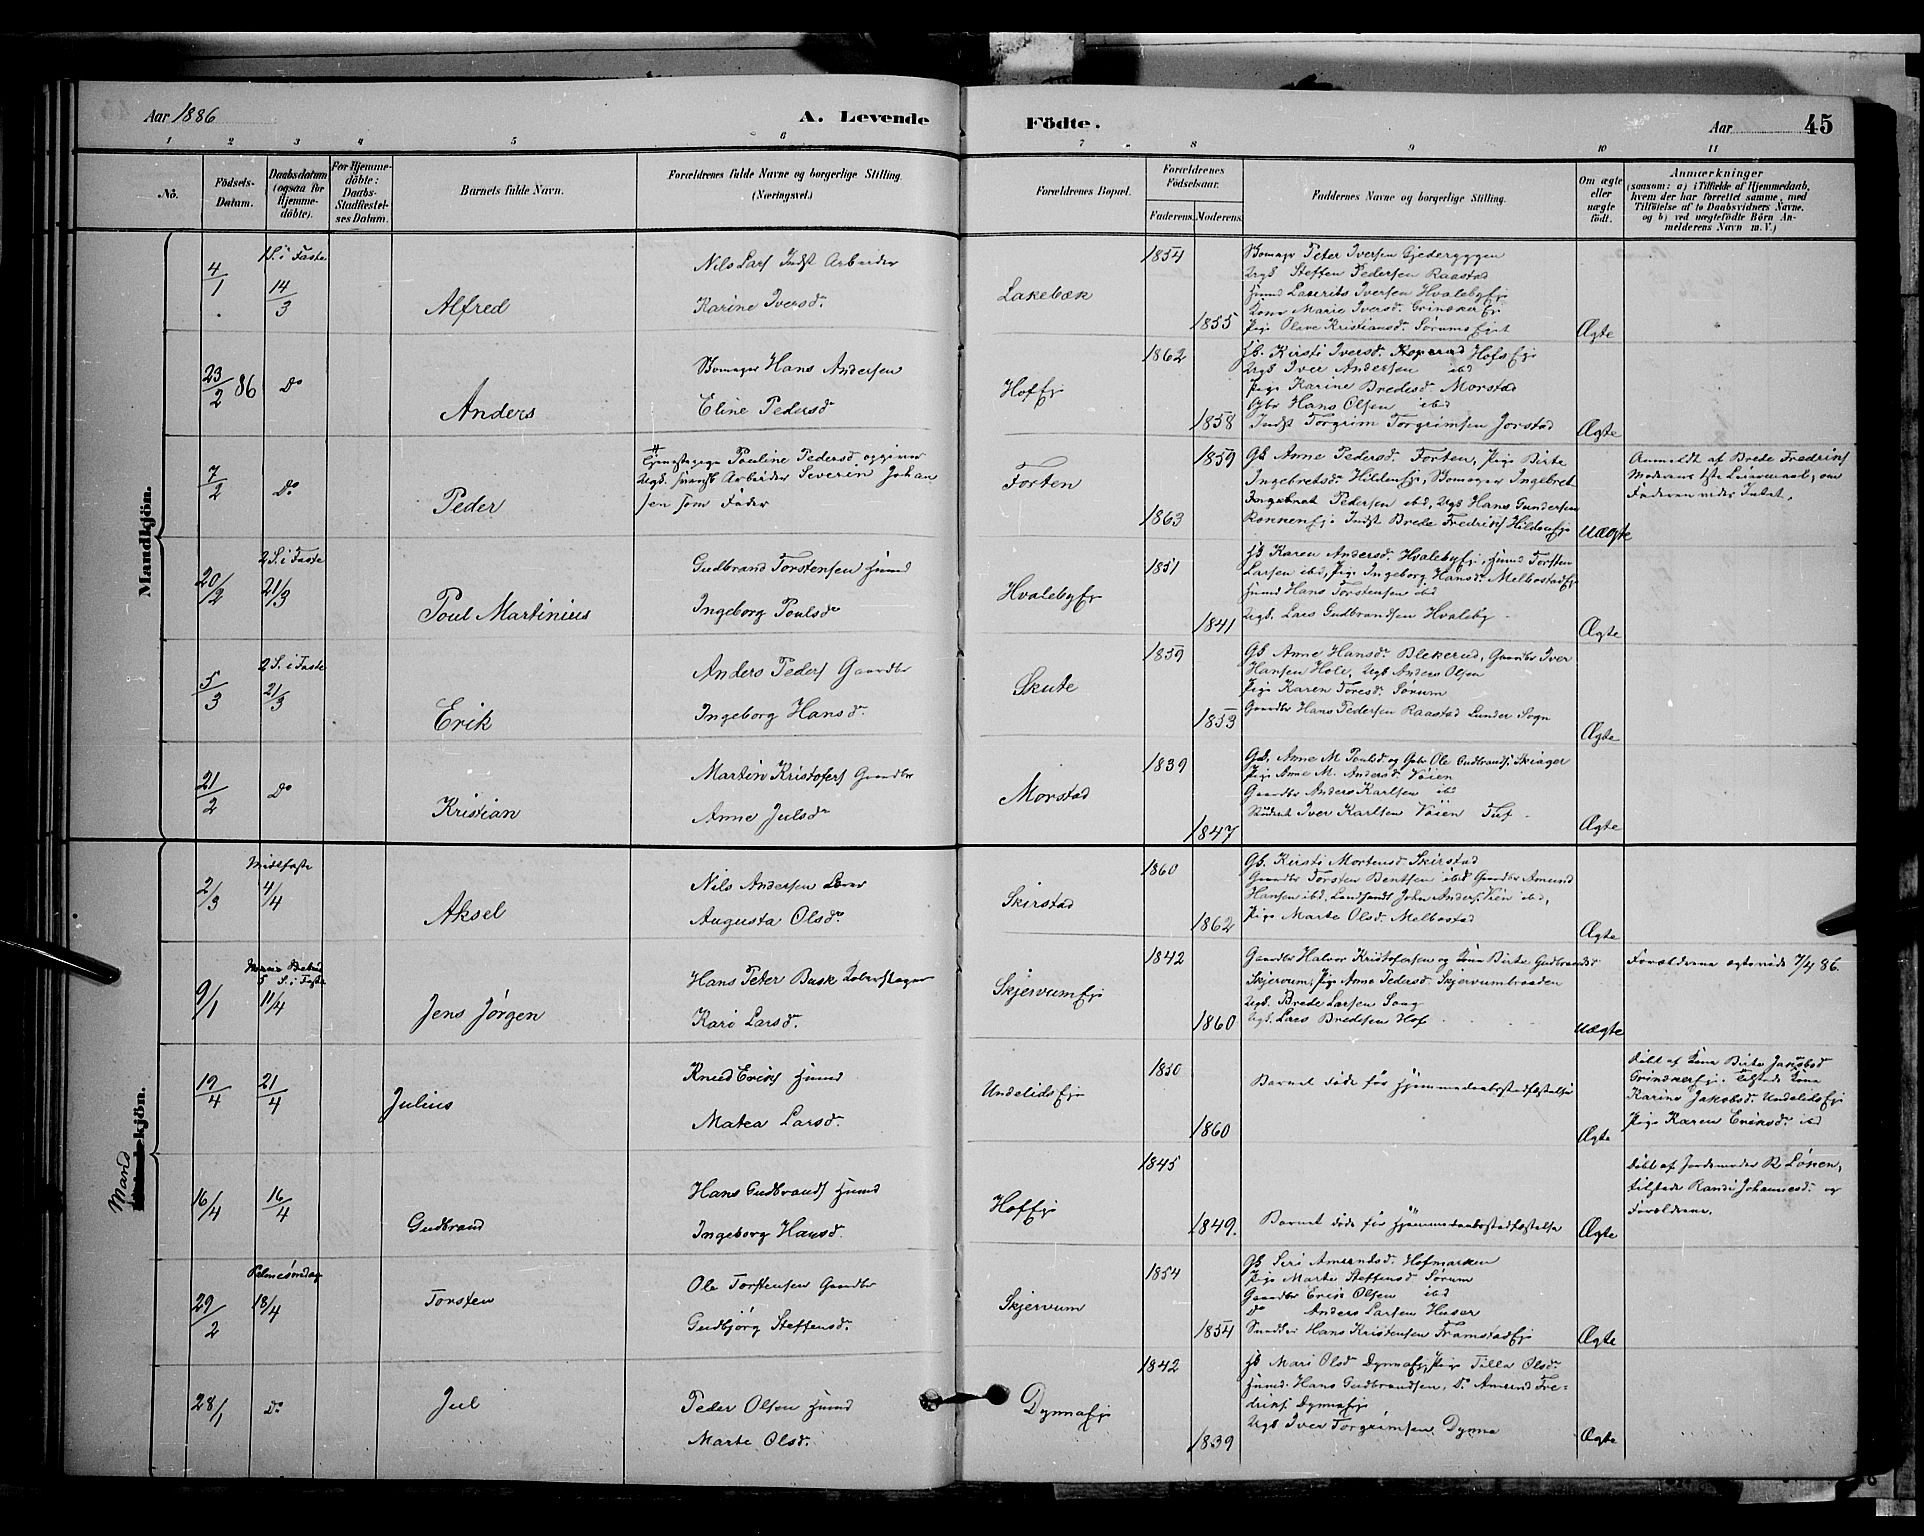 Aar 1886
A. Levende
Födte.
Aar
45
1 2 3 4 5 6 7 8 9 10 11
No.
Födsels-Datum.
Daabsdatum (ogsaa for Hjemme-döbte).
For Hjemme-döbte: Daabs-Stadfæstel-ses Datum.
Barnets fulde Navn.
Forældrenes fulde Navne og borgerlige Stilling (Næringsvei.)
Forældrenes Bopæl.
Forældrenes Födselsaar.
Faderens. Moderens.
Faddernes Navne og borgerlige Stilling.
Om ægte eller uægte födt.
Anmærkninger
(saasom: a) i Tilfælde af Hjemmedaab, hvem der har forrettet samme, med Tilföielse af to Daabsvidners Navne, og b) ved uægtefödte Börn An-melderens Navn m. V.)
Mandkjön.
4/1
1 S. i Faste
14/3
Alfred
Nils Lars Indst Arbeider
Karine Iversd.
Lakebæk
1854
1855
Bomager Peter Iversen
Ugk Steffen Pedersen Raastad
Husmd Laurits Iversen Hvalebyej
Kone Marie Iversd.
Pige Olive Kristiansd. Sørumseiet
Ægte
23/2 86
Do
Anders
Bomager Hans Andersen
Eline Pedersd
Hoffej
1862
1858
Kirsti Iversd. Hofsej
Ugk Iver Andersen ibd
Pige Karine Bredesd Morstad
Gbr Hans Olsen ibd
Indst Torgrim Torgrimsen Jorstad
Ægte
7/2
Do
Peder
Tjenestepige Pauline Pedersd opgiver
Ugk. Arbeider Severin Johan
sen som Fader
Forten
1859
1863
Gk Anne Pedersd. Forten, Pige Birte
Ingebretsd. Hildenej, Bomager Ingebret
Ingebret Pedersen ibd, Ugk Hans Gundersen
Indst Brede Fredriks Hildenej
Uægte
Anmeldt af Brede Fredriks
Moderens 1ste Leiermaal, om
Faderen vides Intet.
20/2
2 S. i Faste
21/3
Poul Martinius
Gudbrand Torstensen Husmd
Ingeborg Poulsd
Hvalebyej
1851
1841
Karen Andersd. Hvalebyej, Husmd Torsten
Larsen ibd, Pige Ingeborg Hansd. Melbostadej
Husmd Hans Torstensen ibd
Ugk. Lars Gudbrandsen Hvaleby
Ægte
5/3
2 S. i Faste
21/3
Erik
Anders Peders Gaardbr
Ingeborg Hansd.
Skute
1859
1853
Gk Anne Hansd. Blekerud, Gaardbr Iver
Hansen Hole, Ugk Anders Olsen
Pige Karen Toresd. Sørum
Gaardbr Hans Pedersen Raastad Lunder Sogn
Ægte
21/2
Do
Kristian
Martin Kristofers Gaardbr
Anne Julsd
Morstad
1839
1847
Gk. Anne M Poulsd og Gbr Ole Gudbrands. Skiager
Pige Anne M. Andersd Vøien
Gaardbr Anders Karlsen ibd
Student Iver Karlsen Vøien
Ægte
Mandkjön.
2/3
Midtfaste
4/4
Aksel
Nils Andersen Lærer
Augusta Olsd.
Skirstad
1860
1862
Gk. Kirsti Mortensd Skirstad
Gaardbr Torsten Bentsen ibd Gaardbr Amund
Hansen ibd, John Anders. ibd,
Pige Marte Olsd. Melbostad
Ægte
9/1
Mariæ Bebud
5 S. i Faste
11/4
Jens Jørgen
Hans Peter Busk
Kari Larsd.
Skjervumej
1842
1860
Gaardbr Halvor Kristofersen og Kone Birte Gudbrandsd
Skjervum, Pige Anne Pedersd. Skjervumbraaden
Ugk. Brede Larsen Saug
Ugk. Lars Bredesen Hof
Uægte
Forældrene ægteviede 7/4 86.
19/4
21/4
Julius
Knud Eriks Husmd
Matea Larsd.
Undelidsej
1850
1860
Barnet døde før Hjemmedaabsstadfæstelse
Ægte
Døbt af Kone Birte Jakobsd
Tilstede Kone
Karine Jakobsd. Undelidsej
Pige Karen Eriksd. ibd
16/4
16/4
Gudbrand
Hans Gudbrands Husmd
Ingeborg Hansd.
Hoffej
1845
1849.
Barnet døde før Hjemmedaabsstadfæstelse
Ægte
Døbt af Jordemoder R. Løken,
tilstede Randi Johannesd. og
Forældrene.
29/2
Palmesøndag
18/4
Torsten
Ole Torstensen Gaardbr
Gudbjørg Steffensd.
Skjervum
1854
1854
Gk Siri Amundsd. Hofmarken
Pige Marte Steffensd Sørum
Gaardbr Erik Olsen ibd
Do Anders Larsen Huser
Snedker Hans Kristensen Framstadej
Ægte
28/1
Do
Jul
Peder Olsen Husmd
Marte Olsd.
Dynnaej
1842
1839
Mari Olsd Dynnaej, Pige Tilla Olsd.
Husmd. Hans Gudbrandsen. Do Amund Fre-
driks. Dynnaej
Ugk Iver Torgrimsen Dynna
Ægte